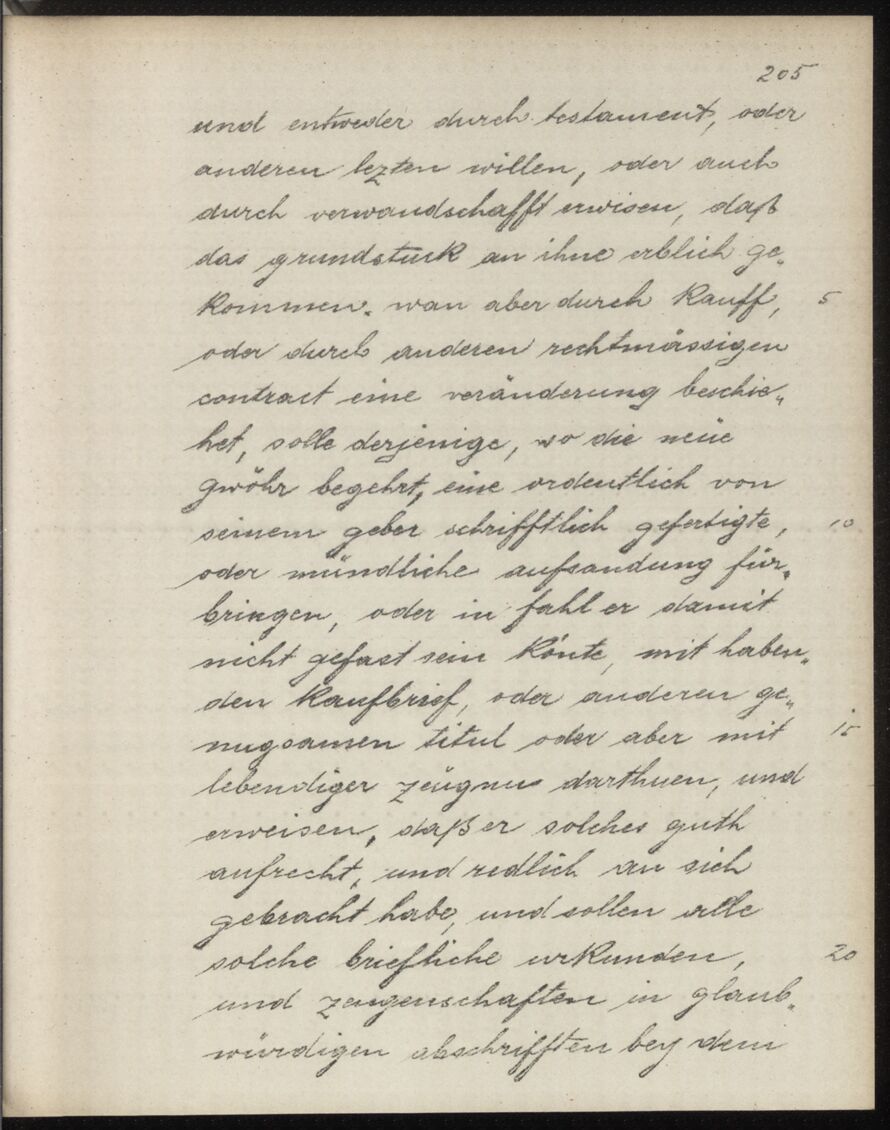 205
und entweder durch testament, oder
anderen lezten willen, oder auch
durch verwandschafft erwisen, daß
das grundstuck an ihne erblich ge„
kommen. wan aber durch kauff, 5
oder durch anderen rechtmässigen
contract eine veränderung beschie„
het, solle derjenige, so die neüe
gwöhr begehrt, eine ordentlich von
seinem geber schrifftlich gefertigte, 10
oder mündliche aufsandung für„
bringen, oder in fahl er damit
nicht gefast sein könte, mit haben„
den kaufbrief, oder anderen ge„
nugsamen titul oder aber mit 15
lebendiger zeügnus darthuen, und
erweisen, daß er solches guth
aufrecht, und redlich an sich
gebracht habe, und sollen alle
solche briefliche urkunden, 20
und zeugenschaften in glaub„
würdigen abschrifften bey dem